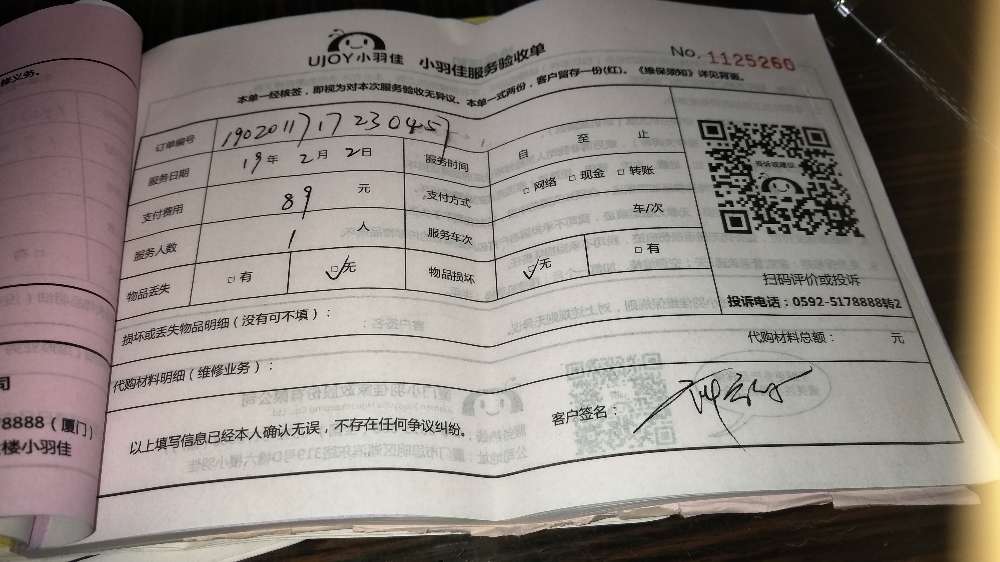 UJOY小羽佳 小羽佳服务验收单 No. 1125260
本单一经核签，即视为对本次服务验收无异议。本单一式两份，客户留存一份(红)。《维保须知》详见背面。
订单编号 1902011717230457
服务日期 19年2月2日 服务时间 自 至 止
支付费用 89 元 支付方式 □ 网络 □ 现金 □ 转账
服务人数 1 人 服务车次 车/次
物品丢失 □ 有 ☑无 物品损坏 ☑无 □ 有
投诉或建议
扫码评价或投诉
投诉电话：0592-5178888转2
损坏或丢失物品明细（没有可不填）：
代购材料明细（维修业务）： 代购材料总额： 元
以上填写信息已经本人确认无误，不存在任何争议纠纷。 客户签名：
修义务。
司
8888（厦门）
楼小羽佳